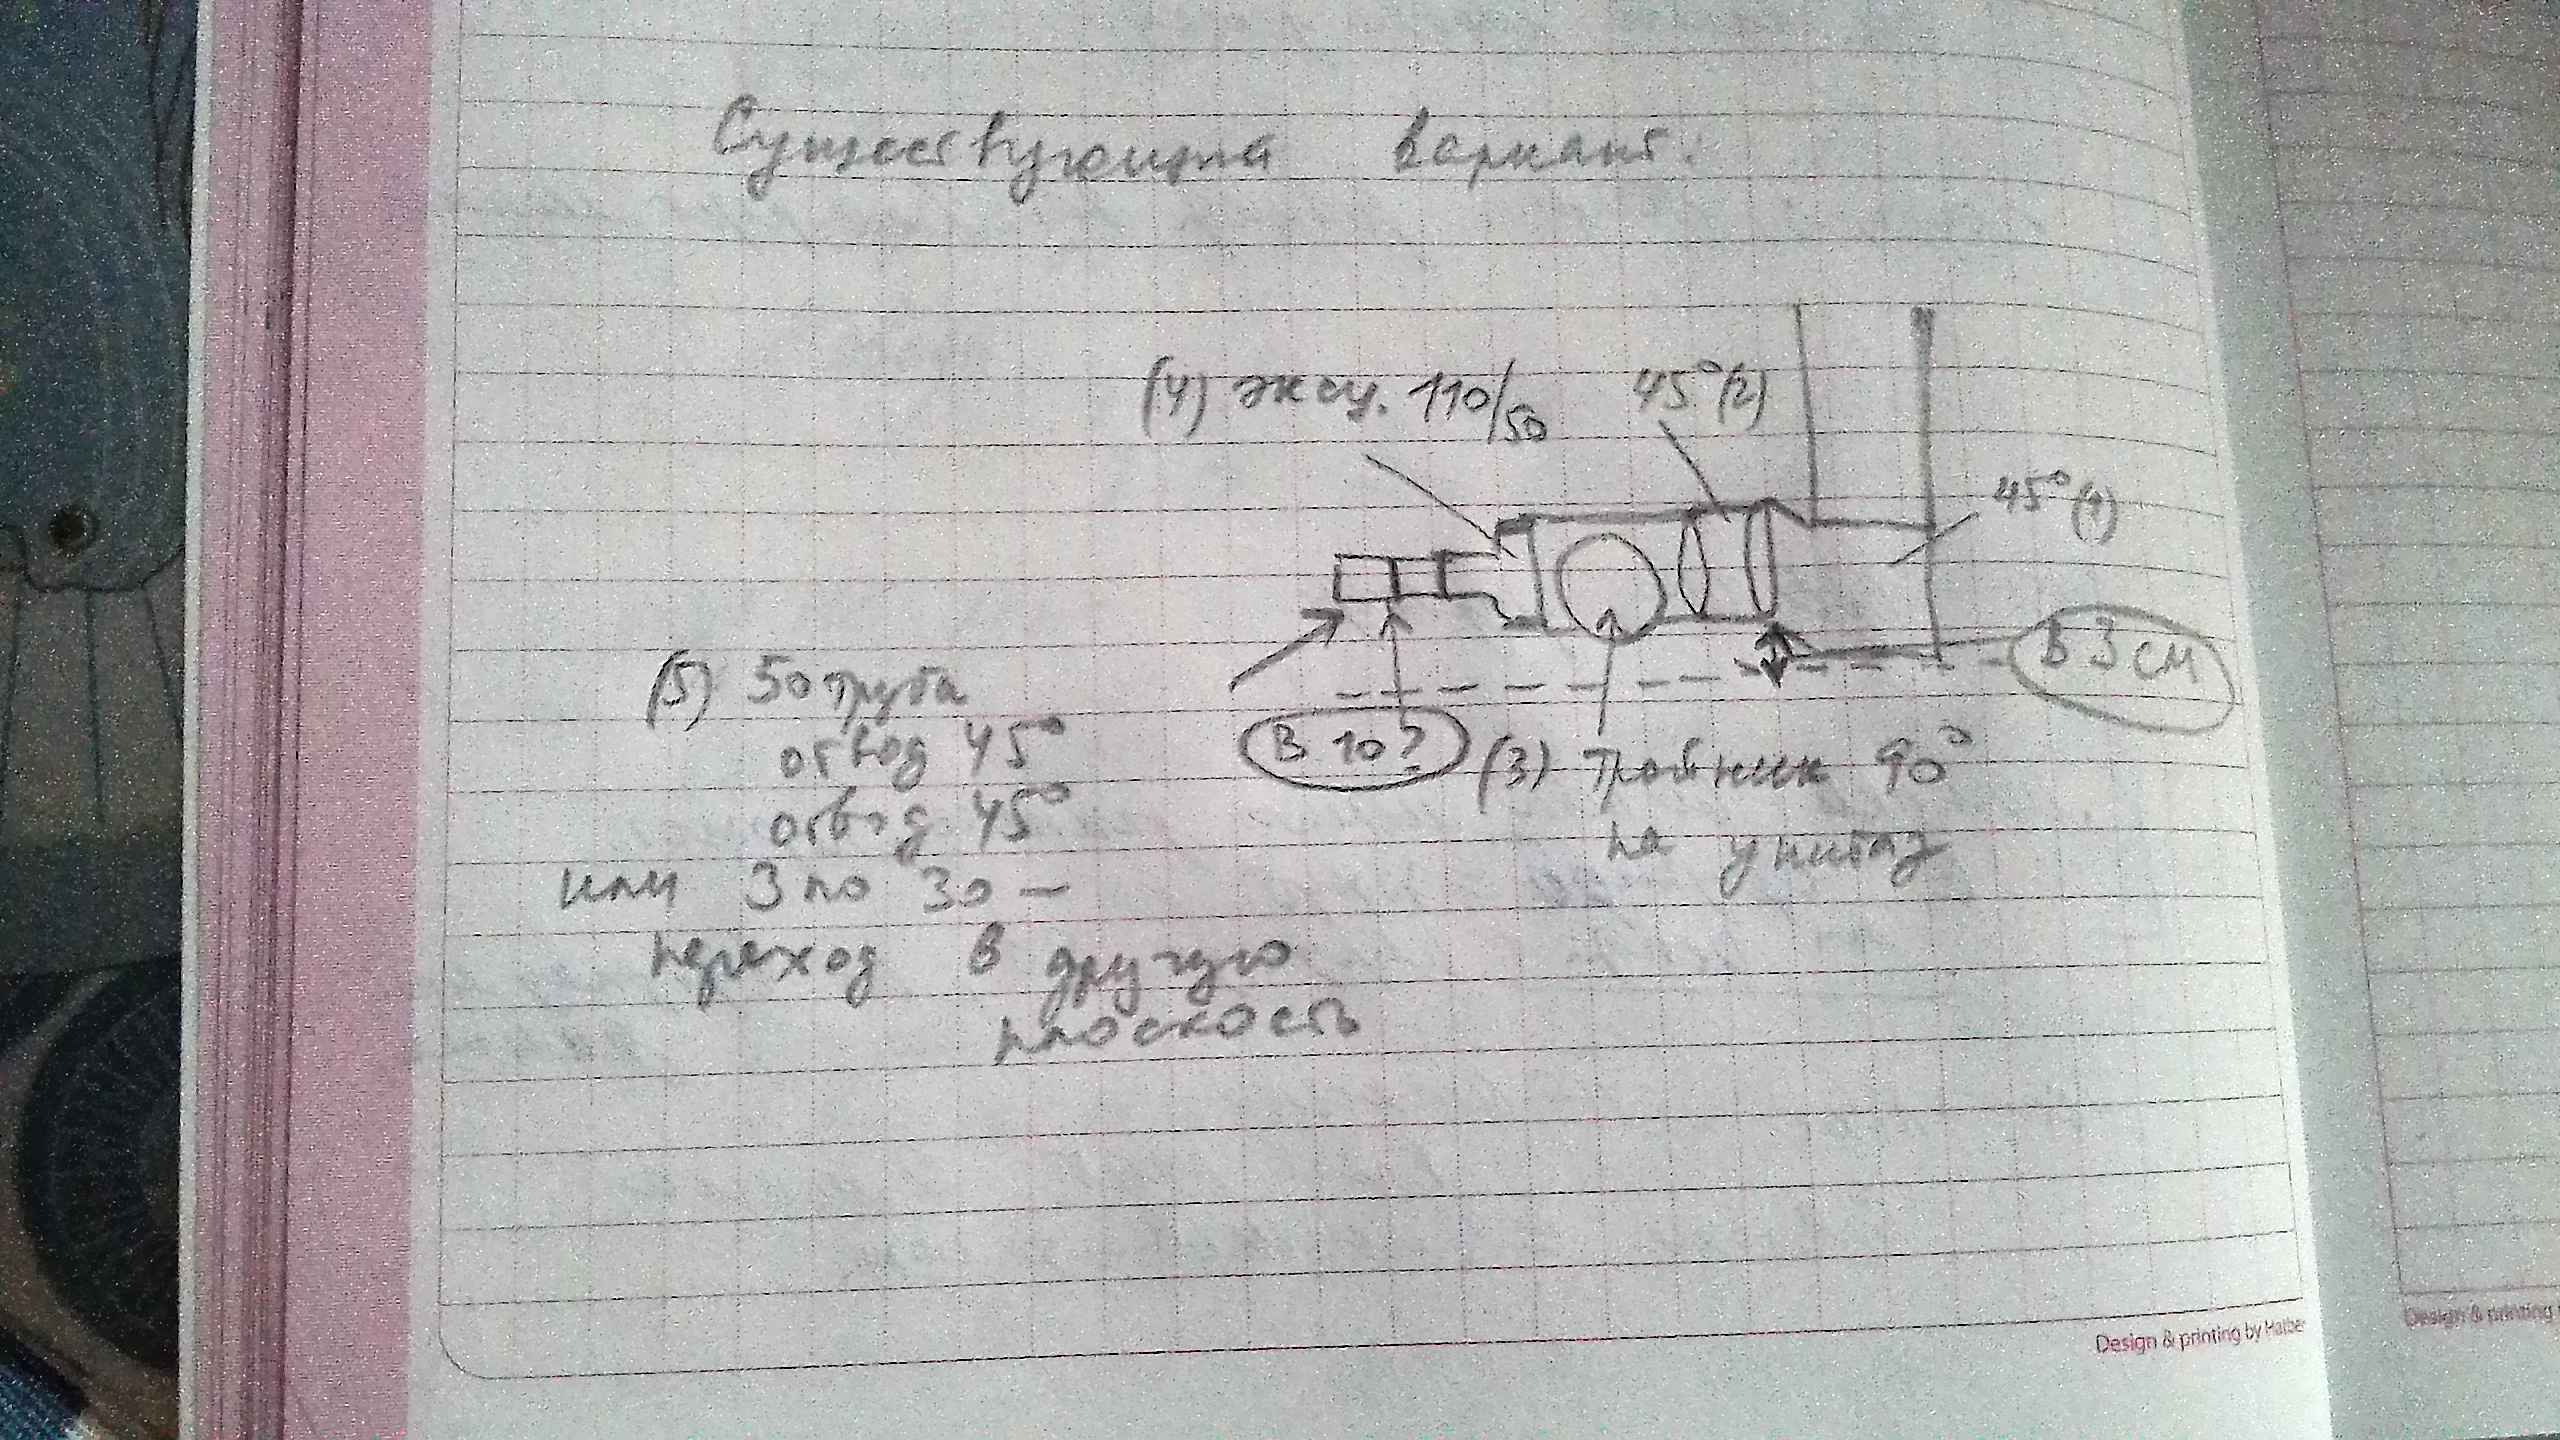 Существующий вариант.
(4) эксц. 110/50
45°(2)
45°(1)
В 3 см
(5) 50 труба
отвод 45°
отвод 45°
или 3 по 30 –
переход в другую
плоскость
В 10?
(3) Тройник 90°
на унитаз
Design & printing by Hatber
Design & printing